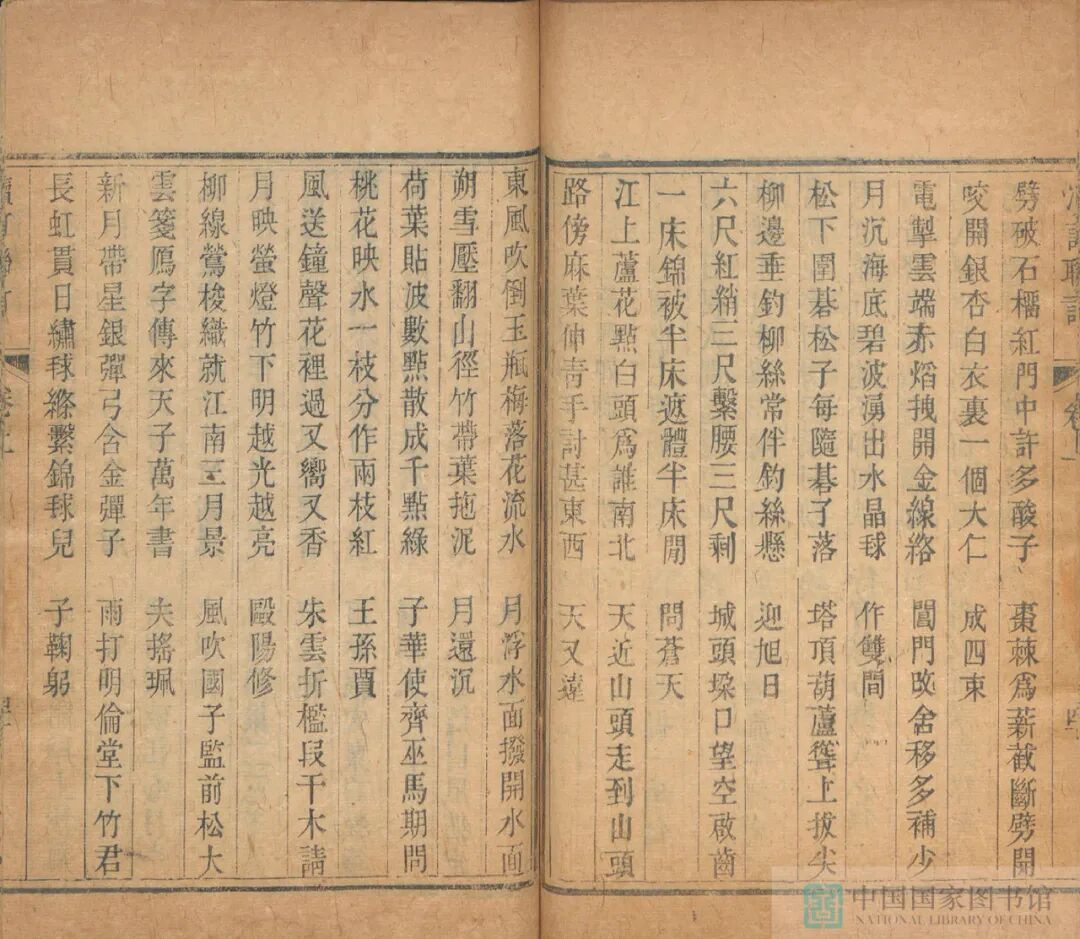 劈破石榴紅門中許多酸子 棗棘爲薪截斷劈開
咬開銀杏白衣裏一個大仁 成四束
電掣雲端赤熖拽開金線絡 閶門改舍移多補少
月沉海底碧波湧出水晶毬 作雙間
松下圍碁松子每隨碁子落 塔頂葫蘆聳上拔尖
柳邊垂釣柳絲常伴釣絲懸 迎旭日
六尺紅綃三尺繫腰三尺剩 城頭垛口望空啟齒
一床錦被半床遮體半床閒 問蒼天
江上蘆花點白頭爲誰南北 天近山頭走到山頭
路傍麻葉伸青手討甚東西 天又遠
東風吹倒玉瓶梅落花流水 月浮水面撥開水面
朔雪壓翻山徑竹帶葉拖泥 月還沉
荷葉貼波數點散成千點綠 子華使齊巫馬期問
桃花映水一枝分作兩枝紅 王孫賈
風送鐘聲花裡過又嚮又香 朱雲折檻段干木請
月映螢燈竹下明越光越亮 毆陽修
柳線鶯梭織就江南三月景 風吹國子監前松大
雲箋鴈字傳來天子萬年書 夫搖珮
新月帶星銀彈弓含金彈子 雨打明倫堂下竹君
長虹貫日繡毬縧繫錦毬兒 子鞠躬
中国国家图书馆
NATIONAL LIBRARY OF CHINA